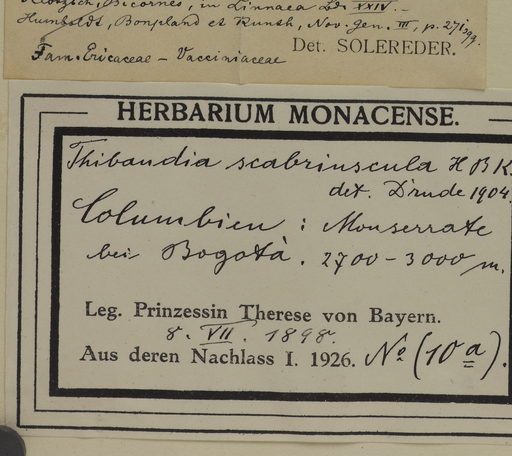 Klotzsch, Bicornes, in Linnaea Bd. XXIV. –
Humboldt, Bonpland et Kunth, Nov. Gen. III, p. 271
Det. SOLEREDER.
Fam. Ericaceae – Vacciniaceae
HERBARIUM MONACENSE.
Thibaudia scabriuscula H B K.
det. Drude 1904.
Columbien : Monserrate
bei Bogotà. 2700 - 3000 m.
Leg. Prinzessin Therese von Bayern.
8. VII. 1898.
Aus deren Nachlass I. 1926. No (10a).